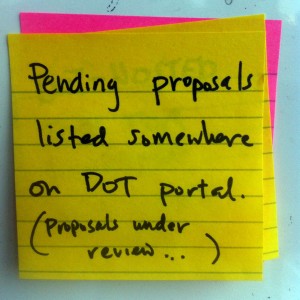 Pending proposals
listed somewhere
on DOT portal.
(proposals under
review... )